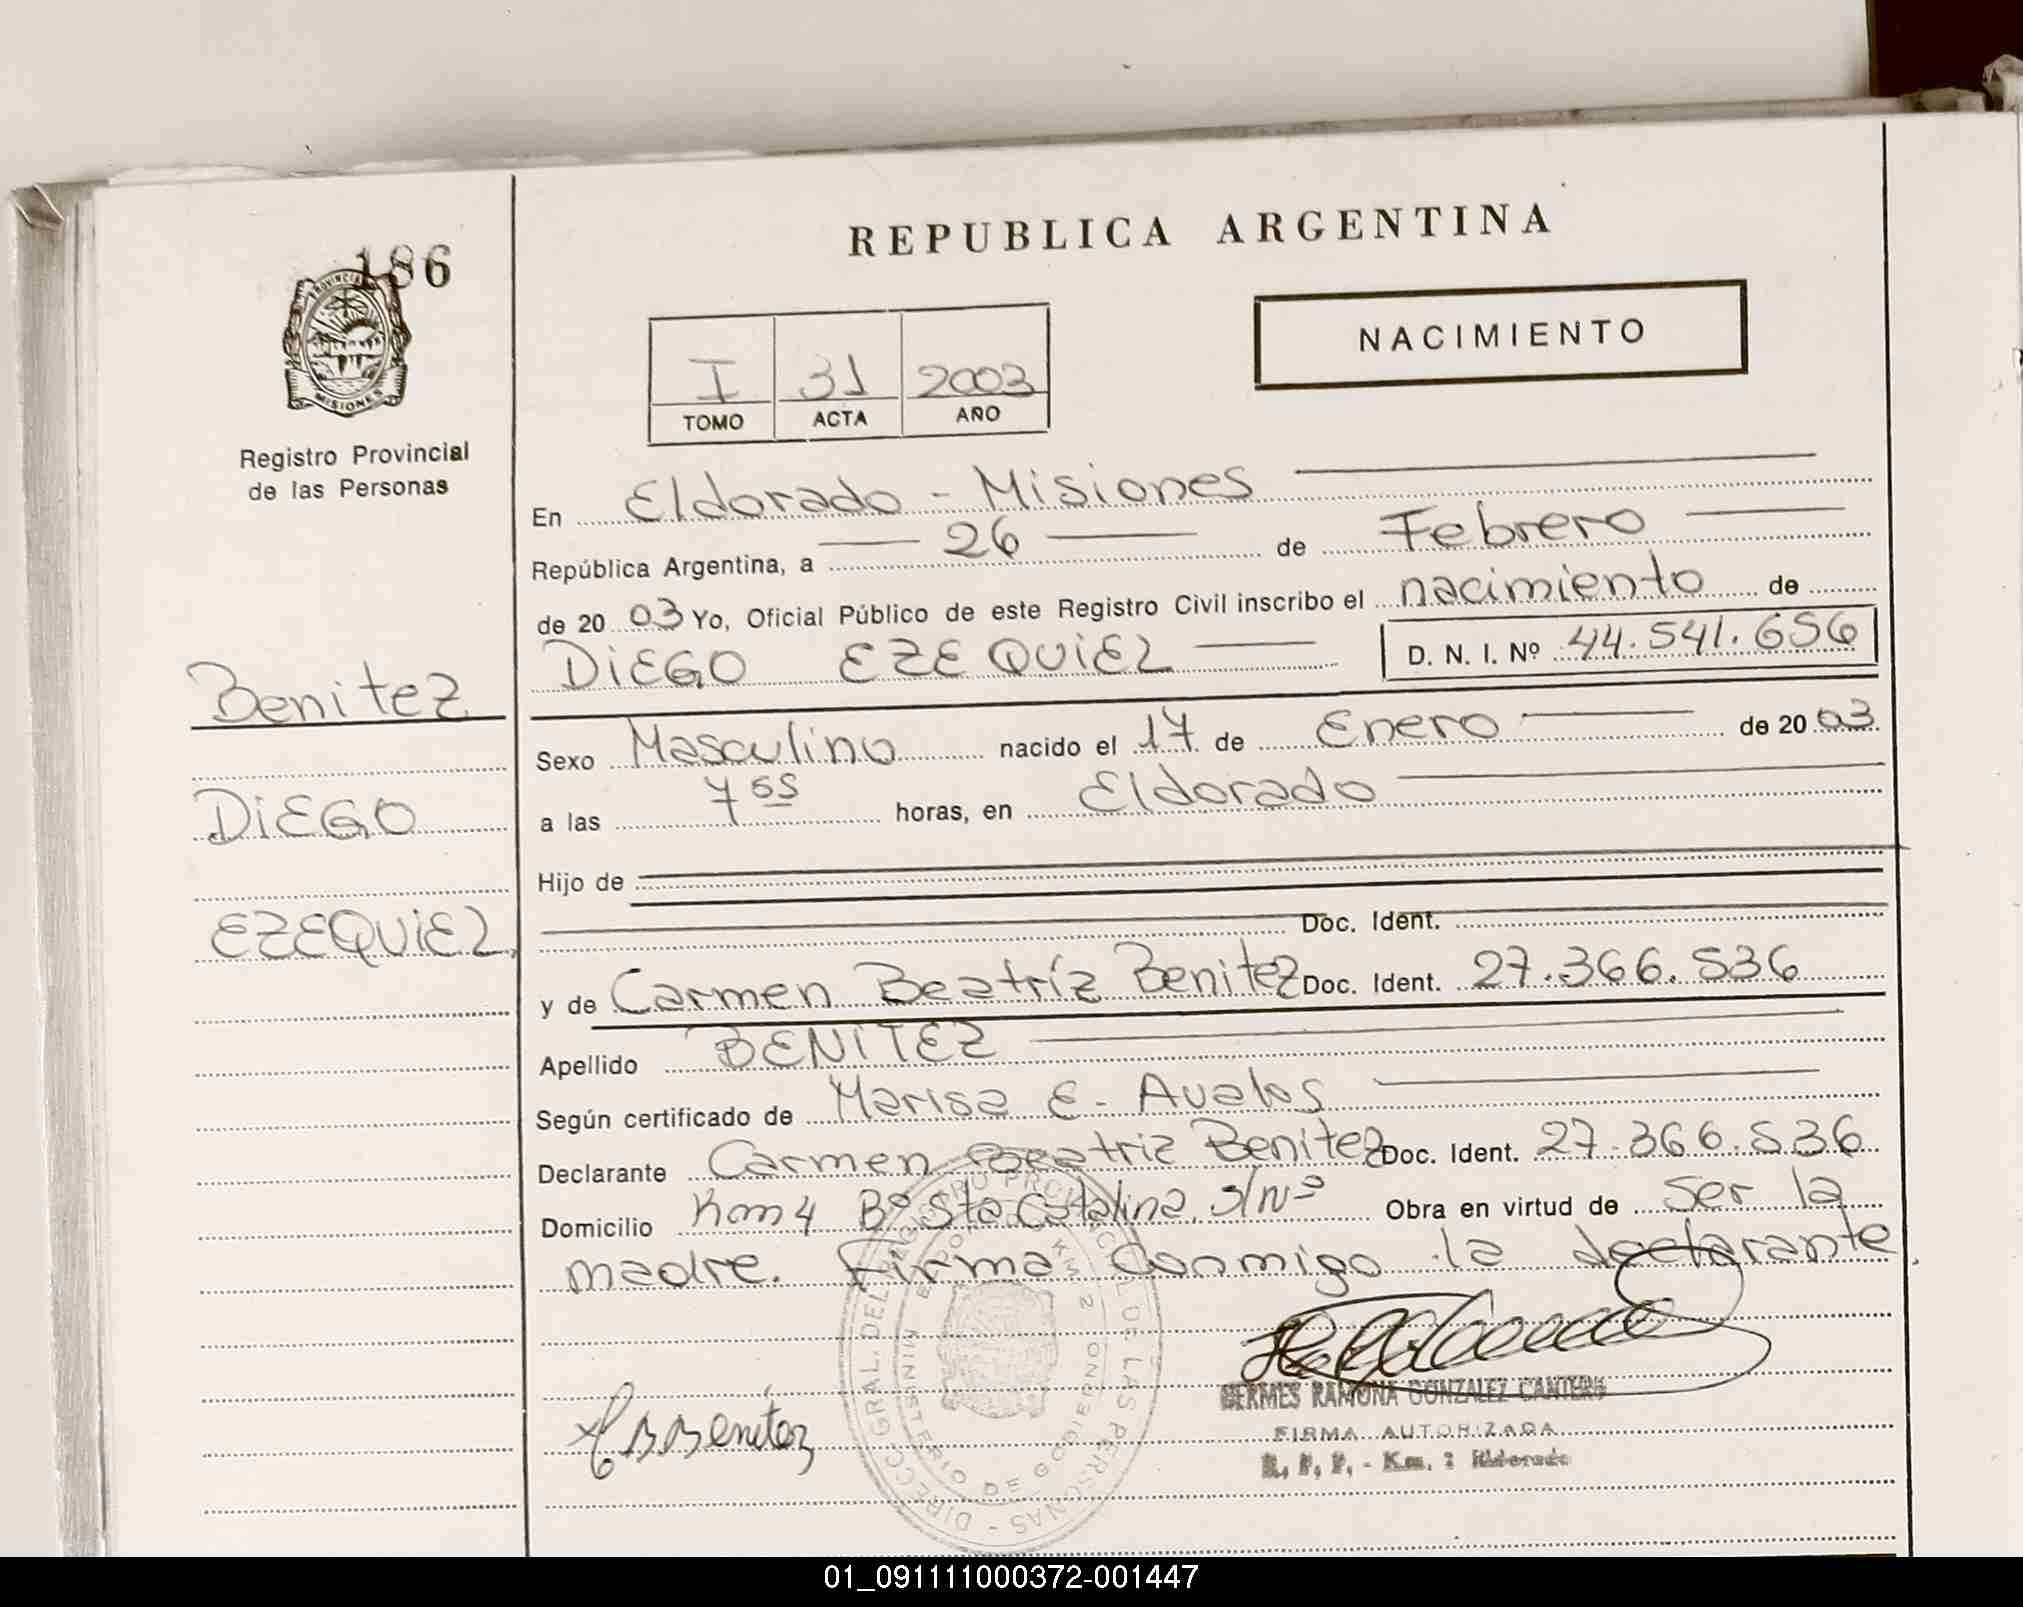 REPUBLICA ARGENTINA
186
PROVINCIA
MISIONES
Registro Provincial
de las Personas
I 31 2003
TOMO ACTA AÑO
NACIMIENTO
En Eldorado - Misiones
República Argentina, a 26 de Febrero
de 20 03 Yo, Oficial Público de este Registro Civil inscribo el nacimiento de
DiEGO EZEQUiEL D. N. I. Nº 44.541.656
Benitez
DiEGO
EZEQUiEL,
Sexo Masculino nacido el 17 de Enero de 20 03
a las 7 55 horas, en Eldorado
Hijo de
Doc. Ident.
y de Carmen Beatríz Benitez Doc. Ident. 27.366.536
Apellido BENITEZ
Según certificado de Marisa E. Avalos
Declarante Carmen Beatriz Benitez Doc. Ident. 27.366.536
Domicilio Km 4 Bº Sta Catalina s/Nº Obra en virtud de ser la
madre. Firma Conmigo la declarante.
DIRECC. GRAL. DEL REGISTRO PROVINCIAL DE LAS PERSONAS
MINISTERIO DE GOBIERNO
KM 2
Benitez
HERMES RAMONA GONZALEZ CANTERO
FIRMA AUTORIZADA
R. P. P. - Km. 2 Eldorado
01_091111000372-001447